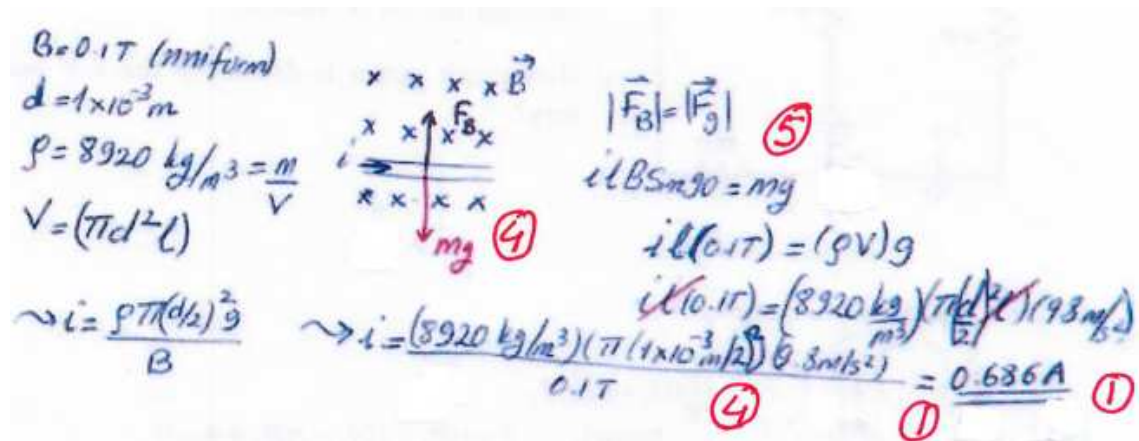 B=0.1T (uniform)
d=1×10⁻³m
ρ=8920 kg/m³=m/V
V=(πd²l)
x x x x B⃗
x x x x
F_B
i
x x x x
mg
④
|F⃗_B|=|F⃗_g|
⑤
ilBSin90=mg
il(0.1T)=(ρV)g
il(0.1T)=(8920 kg/m³)(π(d/2)²l)(9.8m/s²)
⤳i=ρπ(d/2)²g/B
⤳i=(8920 kg/m³)(π(1×10⁻³m/2)²)(9.8m/s²)/0.1T = 0.686A
④
①
①